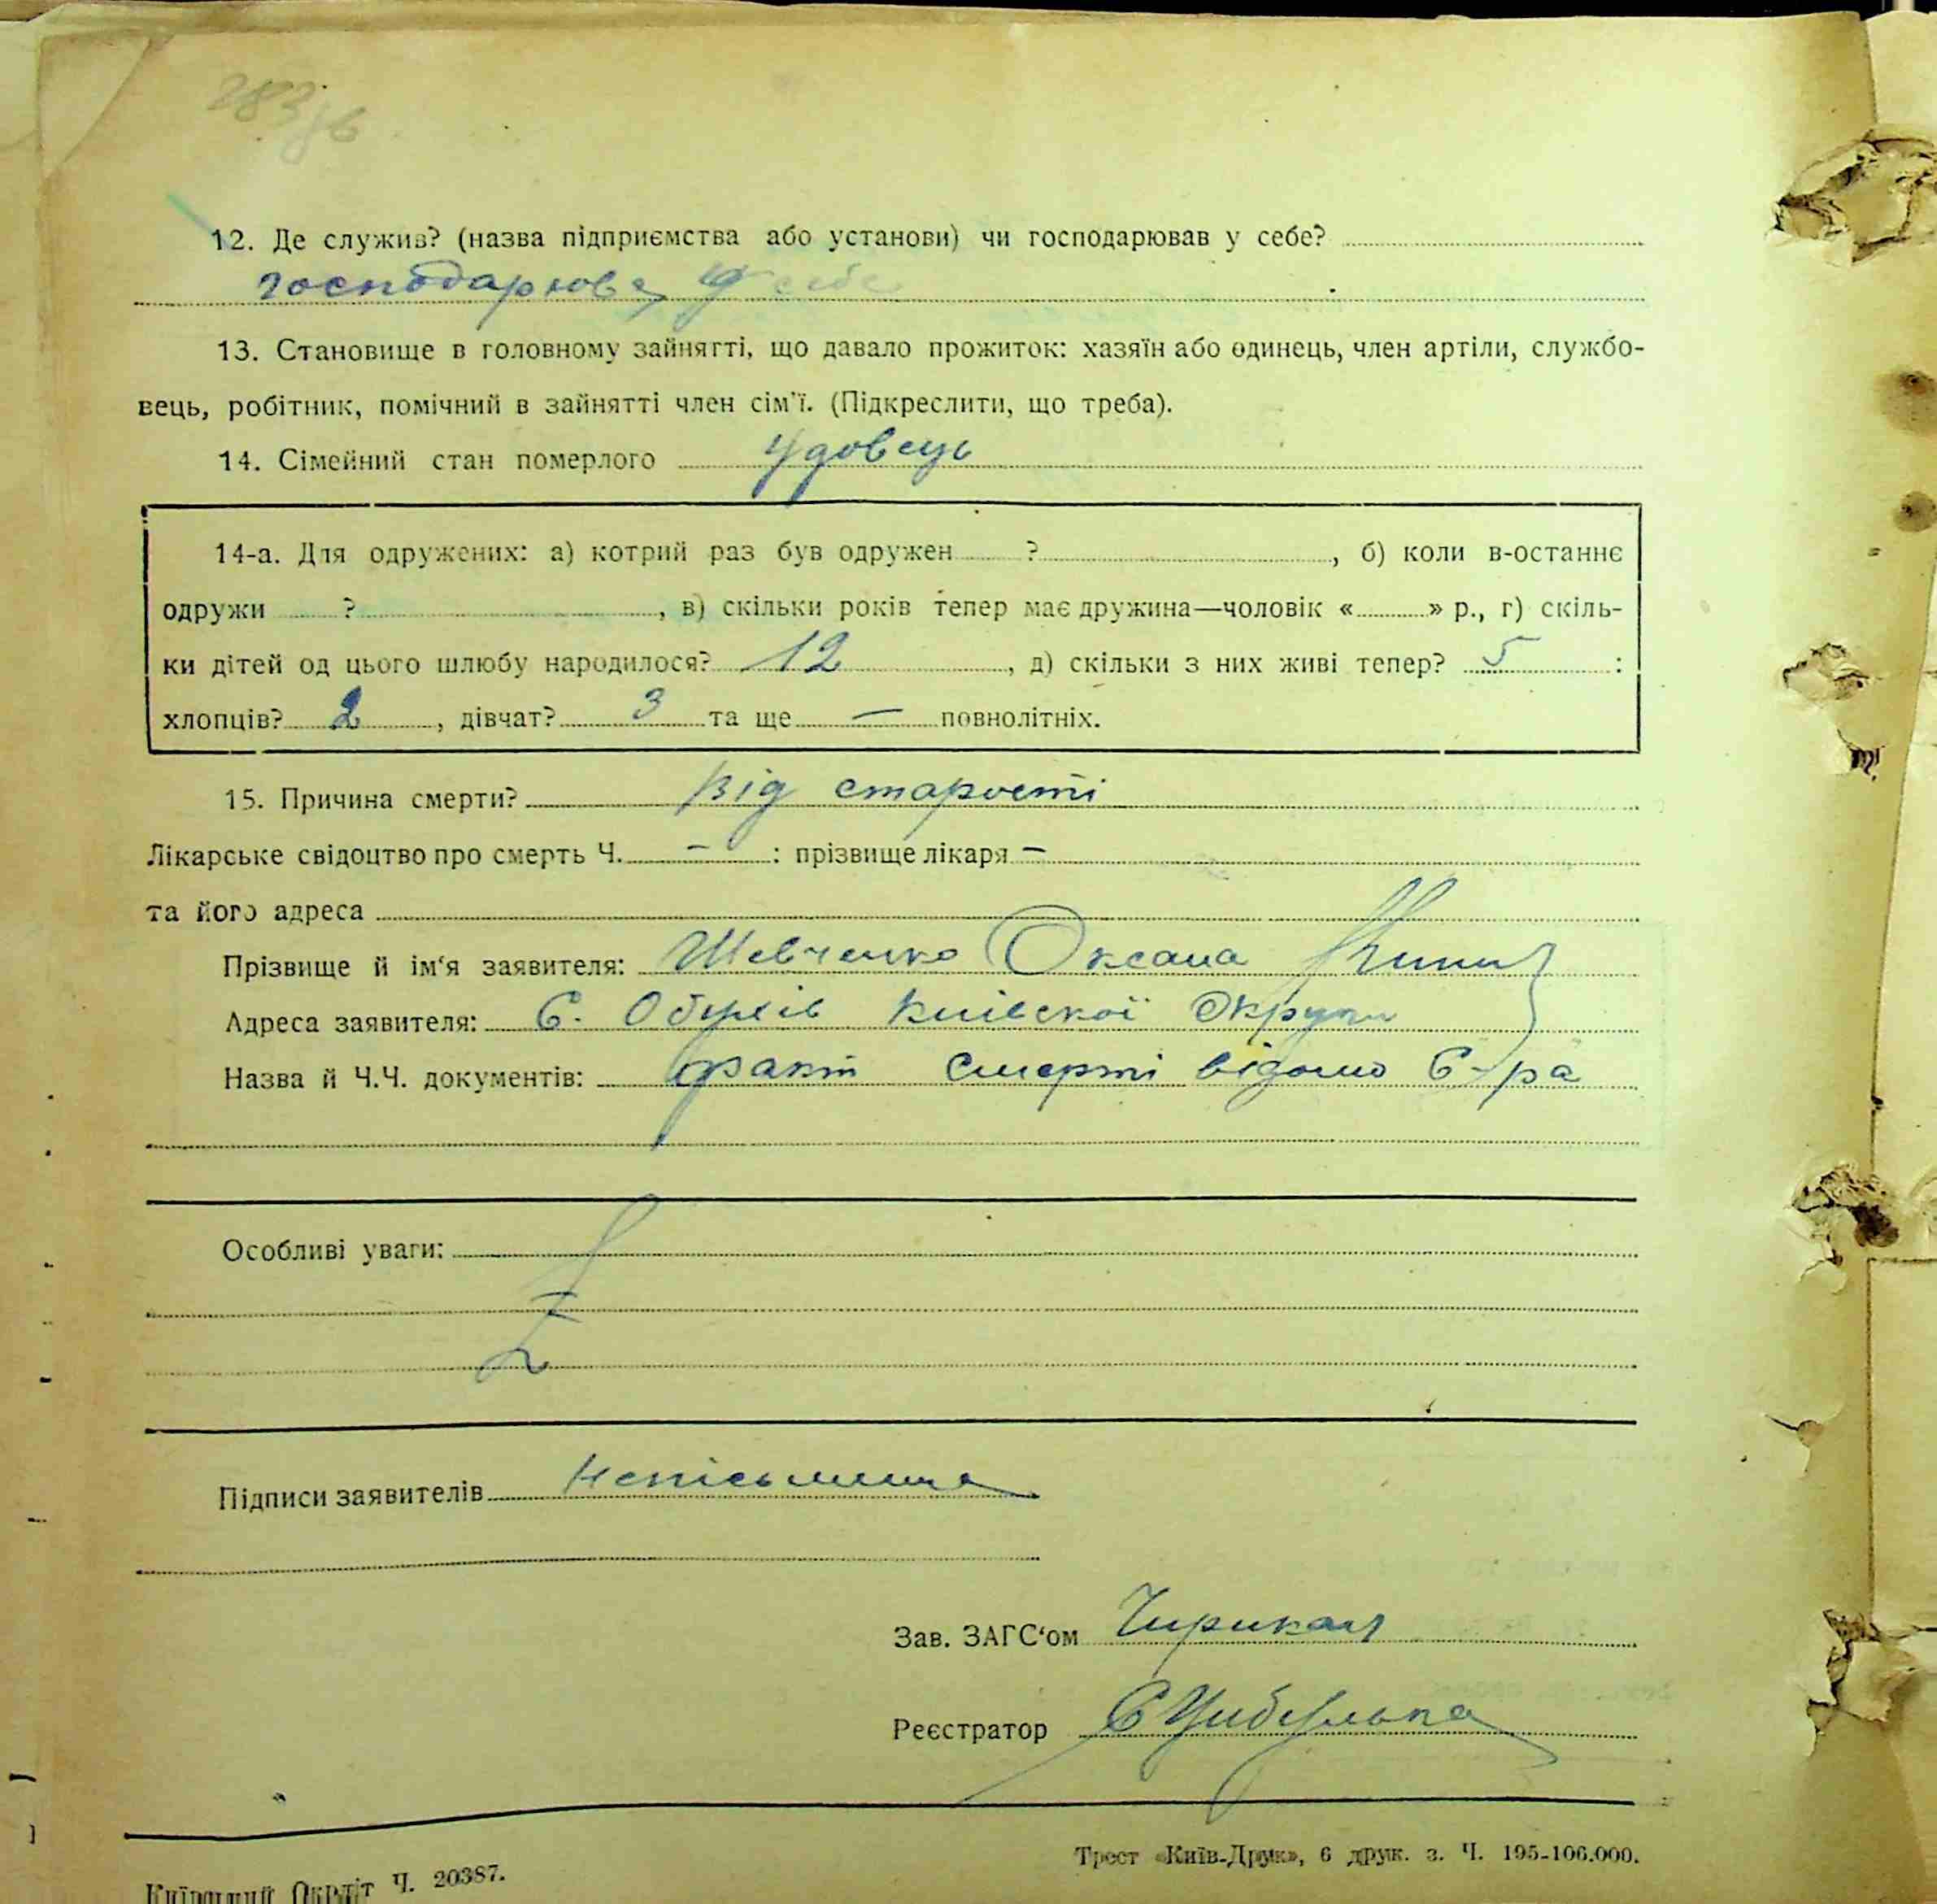 283зв
12. Де служив? (назва підприємства або установи) чи господарював у себе?
господарював у себе
13. Становище в головному зайнятті, що давало прожиток: хазяїн або одинець, член артіли, службо-
вець, робітник, помічний в зайнятті член сім'ї. (Підкреслити, що треба).
14. Сімейний стан померлого удовець
14-а. Для одружених: а) котрий раз був одружен ? , б) коли в-останнє
одружи ? , в) скільки років тепер має дружина—чоловік « » р., г) скіль-
ки дітей од цього шлюбу народилося? 12 , д) скільки з них живі тепер? 5 :
хлопців? 2 , дівчат? 3 та ще — повнолітніх.
15. Причина смерти? від старости
Лікарське свідоцтво про смерть Ч. - : прізвище лікаря -
та його адреса
Прізвище й ім'я заявителя: Шевченко Оксана
Адреса заявителя: С. Обухів Київскої Округи
Назва й Ч.Ч. документів: факт смерті відомо С-ра
Особливі уваги:
Підписи заявителів Неписьменна
Зав. ЗАГС'ом
Реєстратор Є Цибулька
Київський Окрліт Ч. 20387.
Трест «Київ-Друк», 6 друк. з. Ч. 195-106.000.